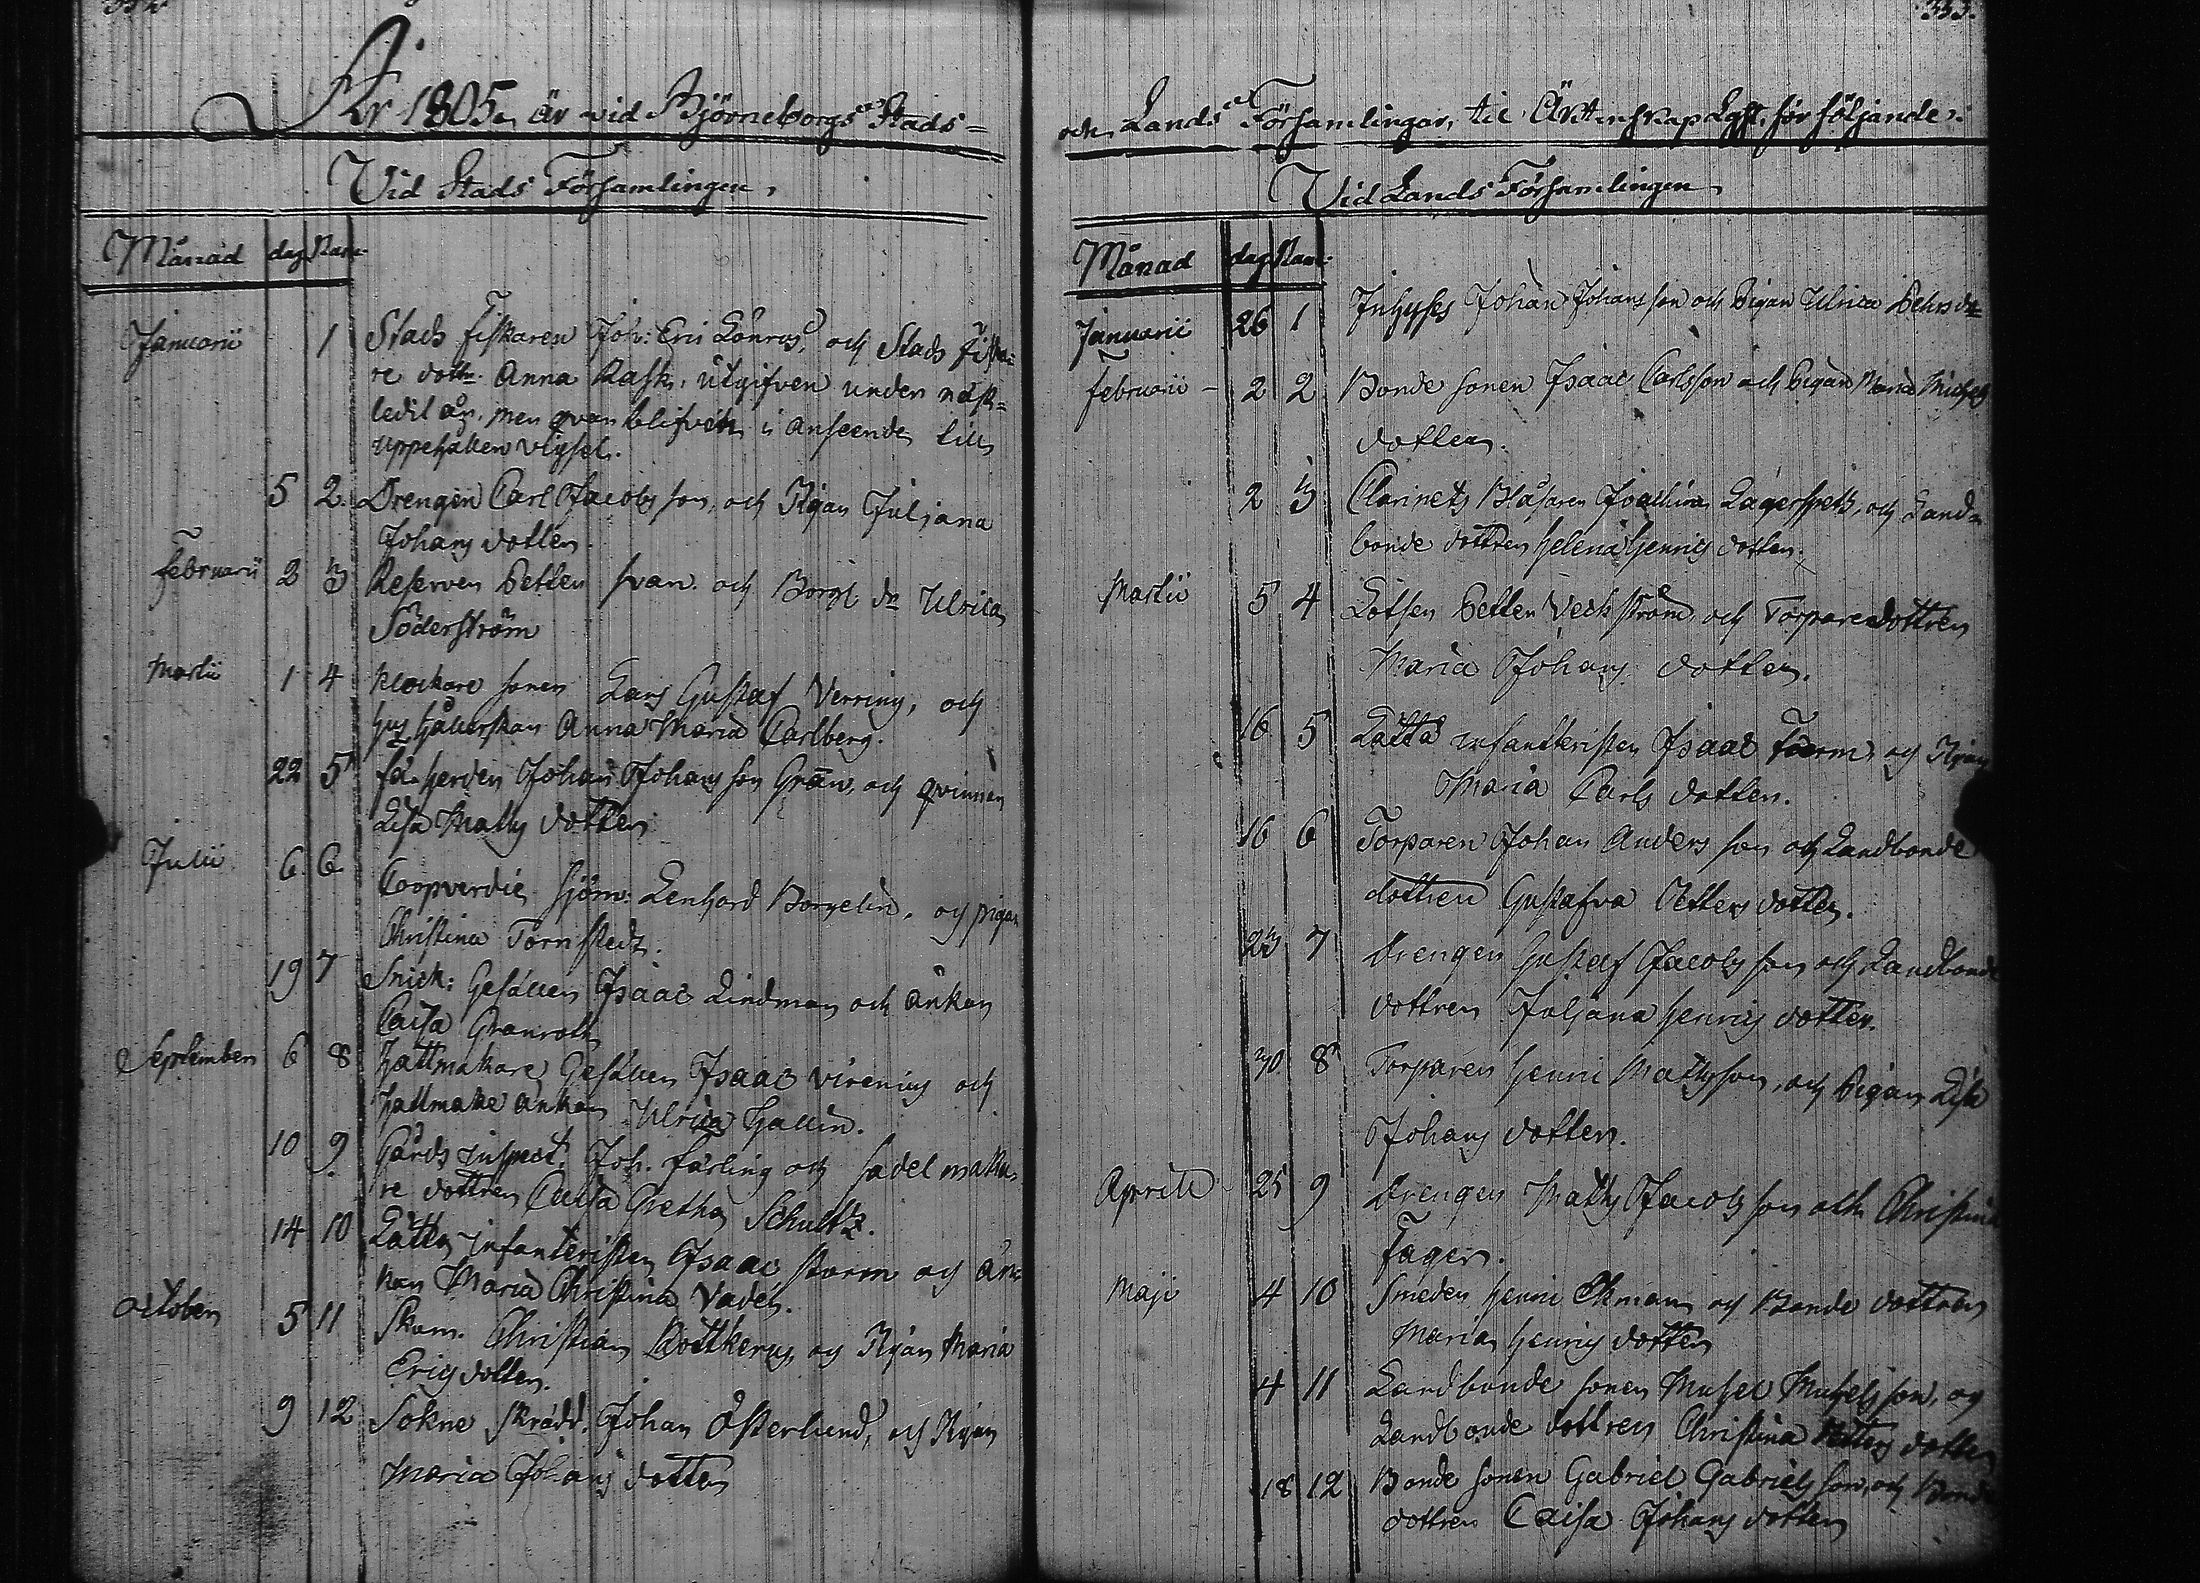 År 1805. är vid Björneborgs Stads=
Vid Stads Församlingen,
Månad dag Num.
Januarii 1 Stads fiskaren Joh: Eric Lönros, och Stads fiska=
re dottr. Anna Rask, utgifven under näst=
ledit år, men qvar blifven i anseende till
uppehållen vigsel.
5 2. Drengen Carl Jacobsson, och Pigan Juliana
Johans dotter.
Februarii 2 3 Reserven Petter Svan. och Borgl. dr Ulrica
Söderström
Martii 1 4 Klockare sonen Lars Gustaf Verring, och
hushållerskan Anna Maria Carlberg.
22 5 få herden Johan Johansson Grän, och qvinnan
Lisa Matts dotter
Julii 6 6 Coopverdie sjöm: Lenhard Borgelin, och pigan
Christina Törnstedt.
19 7 Snick: Gesällen Isaac Lindman och änkan
Caisa Granroth
September 6 8 Hattmakare Gesällen Isaac Virenius och
Hattmake änkan Ulrica Hallin.
10 9 Gårds inspect. Joh. Färling och sadelmaka
re dottren Caisa Gretha Schultz.
14 10 Lätta infanteristen Isaac Storm och än
kan Maria Christina Vadén.
October 5 11 Skom. Christian Rottkerus, och Pigan Maria
Erics dotter.
9 12 Sokne skrädd. Johan Österlund, och Pigan
Maria Johans dotter
333.
och Lands Församlingar, til Äktenskap Lyst, för följande:
Vid Lands Församlingen
Månad dag Num.
Januarii 26 1 Inhyses Johan Johansson och Pigan Ulrica Pehrsdr
Februarii 2 2 Bonde sonen Isaac Carlsson och Pigan Maria Michels
dotter.
2 3 Clarinets Blåsaren Joachim Lagerspets, och Land
bonde dottren Helena Henrics dotter.
Martii 5 4 Lotsen Petter Veckström, och Torpare dottren
Maria Johans dotter.
16 5 Lätta infanteristen Isaac och Pigan
Maria Carls dotter.
16 6 Torparen Johan Anders son och Landbonde
dottren Gustafva Petters dotter.
23 7 Drengen Gustaf Jacobs son och Landbonde
dottren Juliana Henrics dotter.
30 8 Torparen Henric Mattsson, och Pigan Lisa
Johans dotter.
Aprill 25 9 Drengen Matts Jacobs son och Christina
Fager.
Maji 4 10 Smeden Henric Ekman och Bonde dottren
Maria Henrics dotter
4 11 Landbonde sonen Michel Michelsson, och
Landbonde dottren Christina Petters dotter
18 12 Bonde sonen Gabriel Gabriels son, och Bonde
dottren Caisa Johans dotter